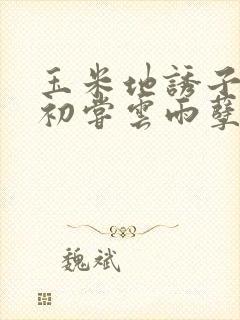 玉米地誘子
初嘗雲雨孽
魏斌